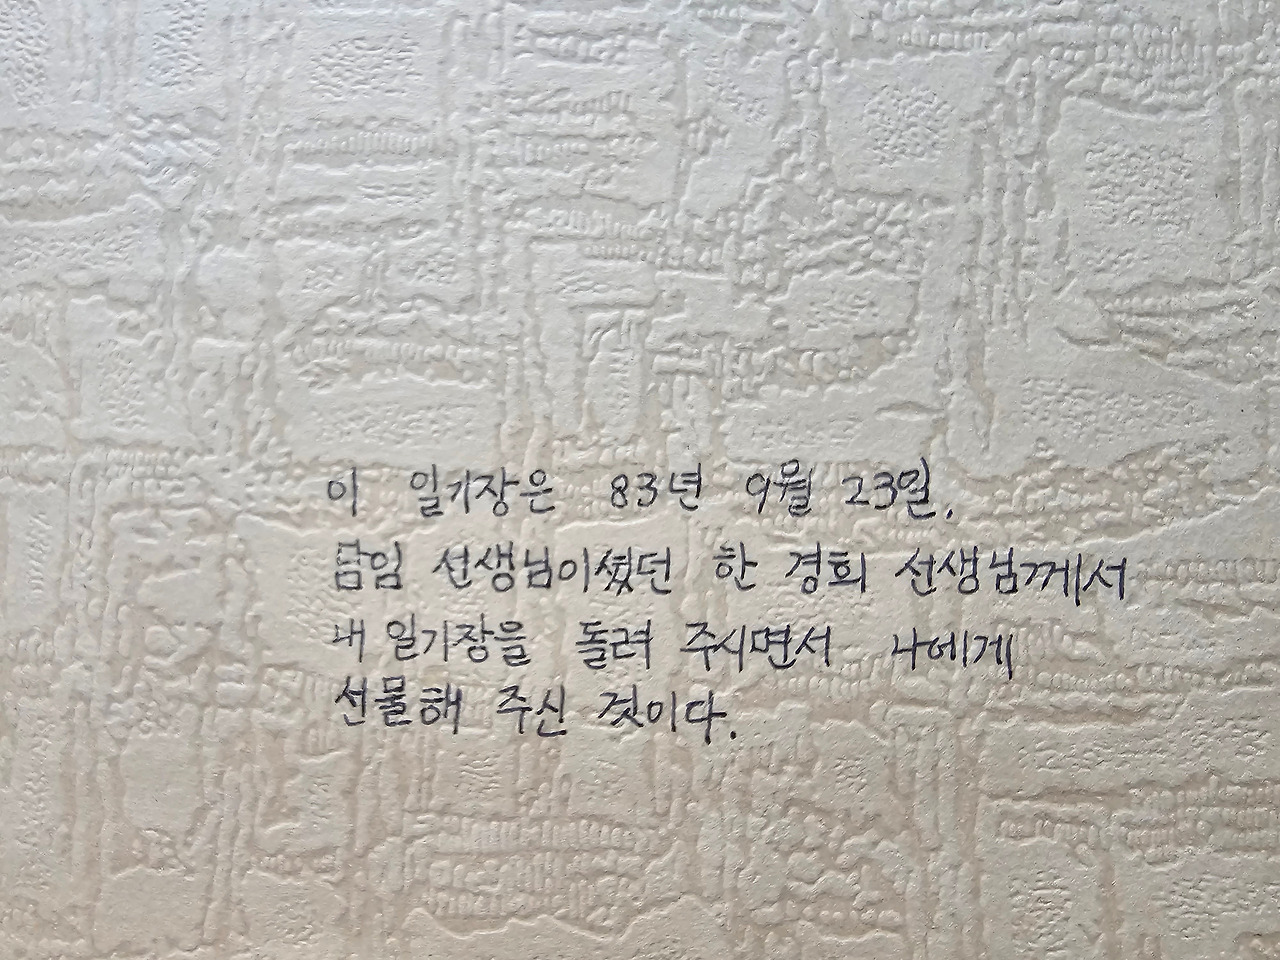 이 일기장은 83년 9월 23일.
담임 선생님이셨던 한 경희 선생님께서
내 일기장을 돌려 주시면서 나에게
선물해 주신 것이다.